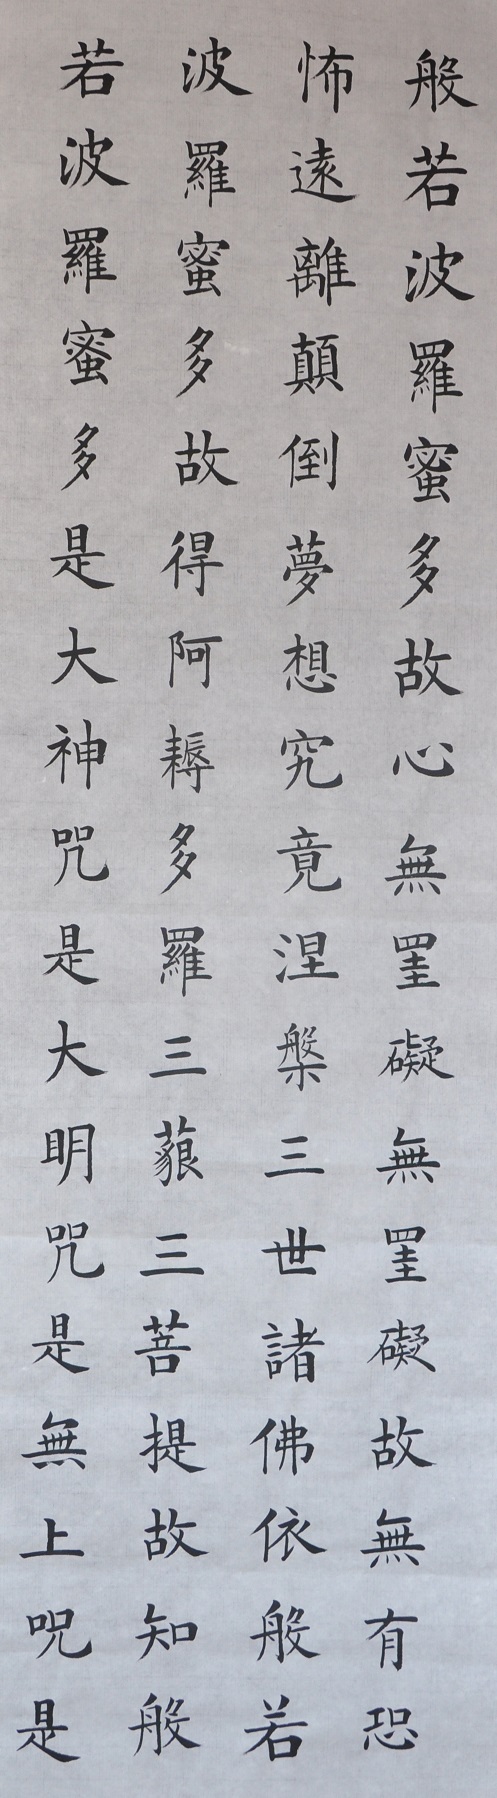 般若波羅蜜多故心無罣礙無罣礙故無有恐
怖遠離顛倒夢想究竟涅槃三世諸佛依般若
波羅蜜多故得阿耨多羅三藐三菩提故知般
若波羅蜜多是大神咒是大明咒是無上呪是